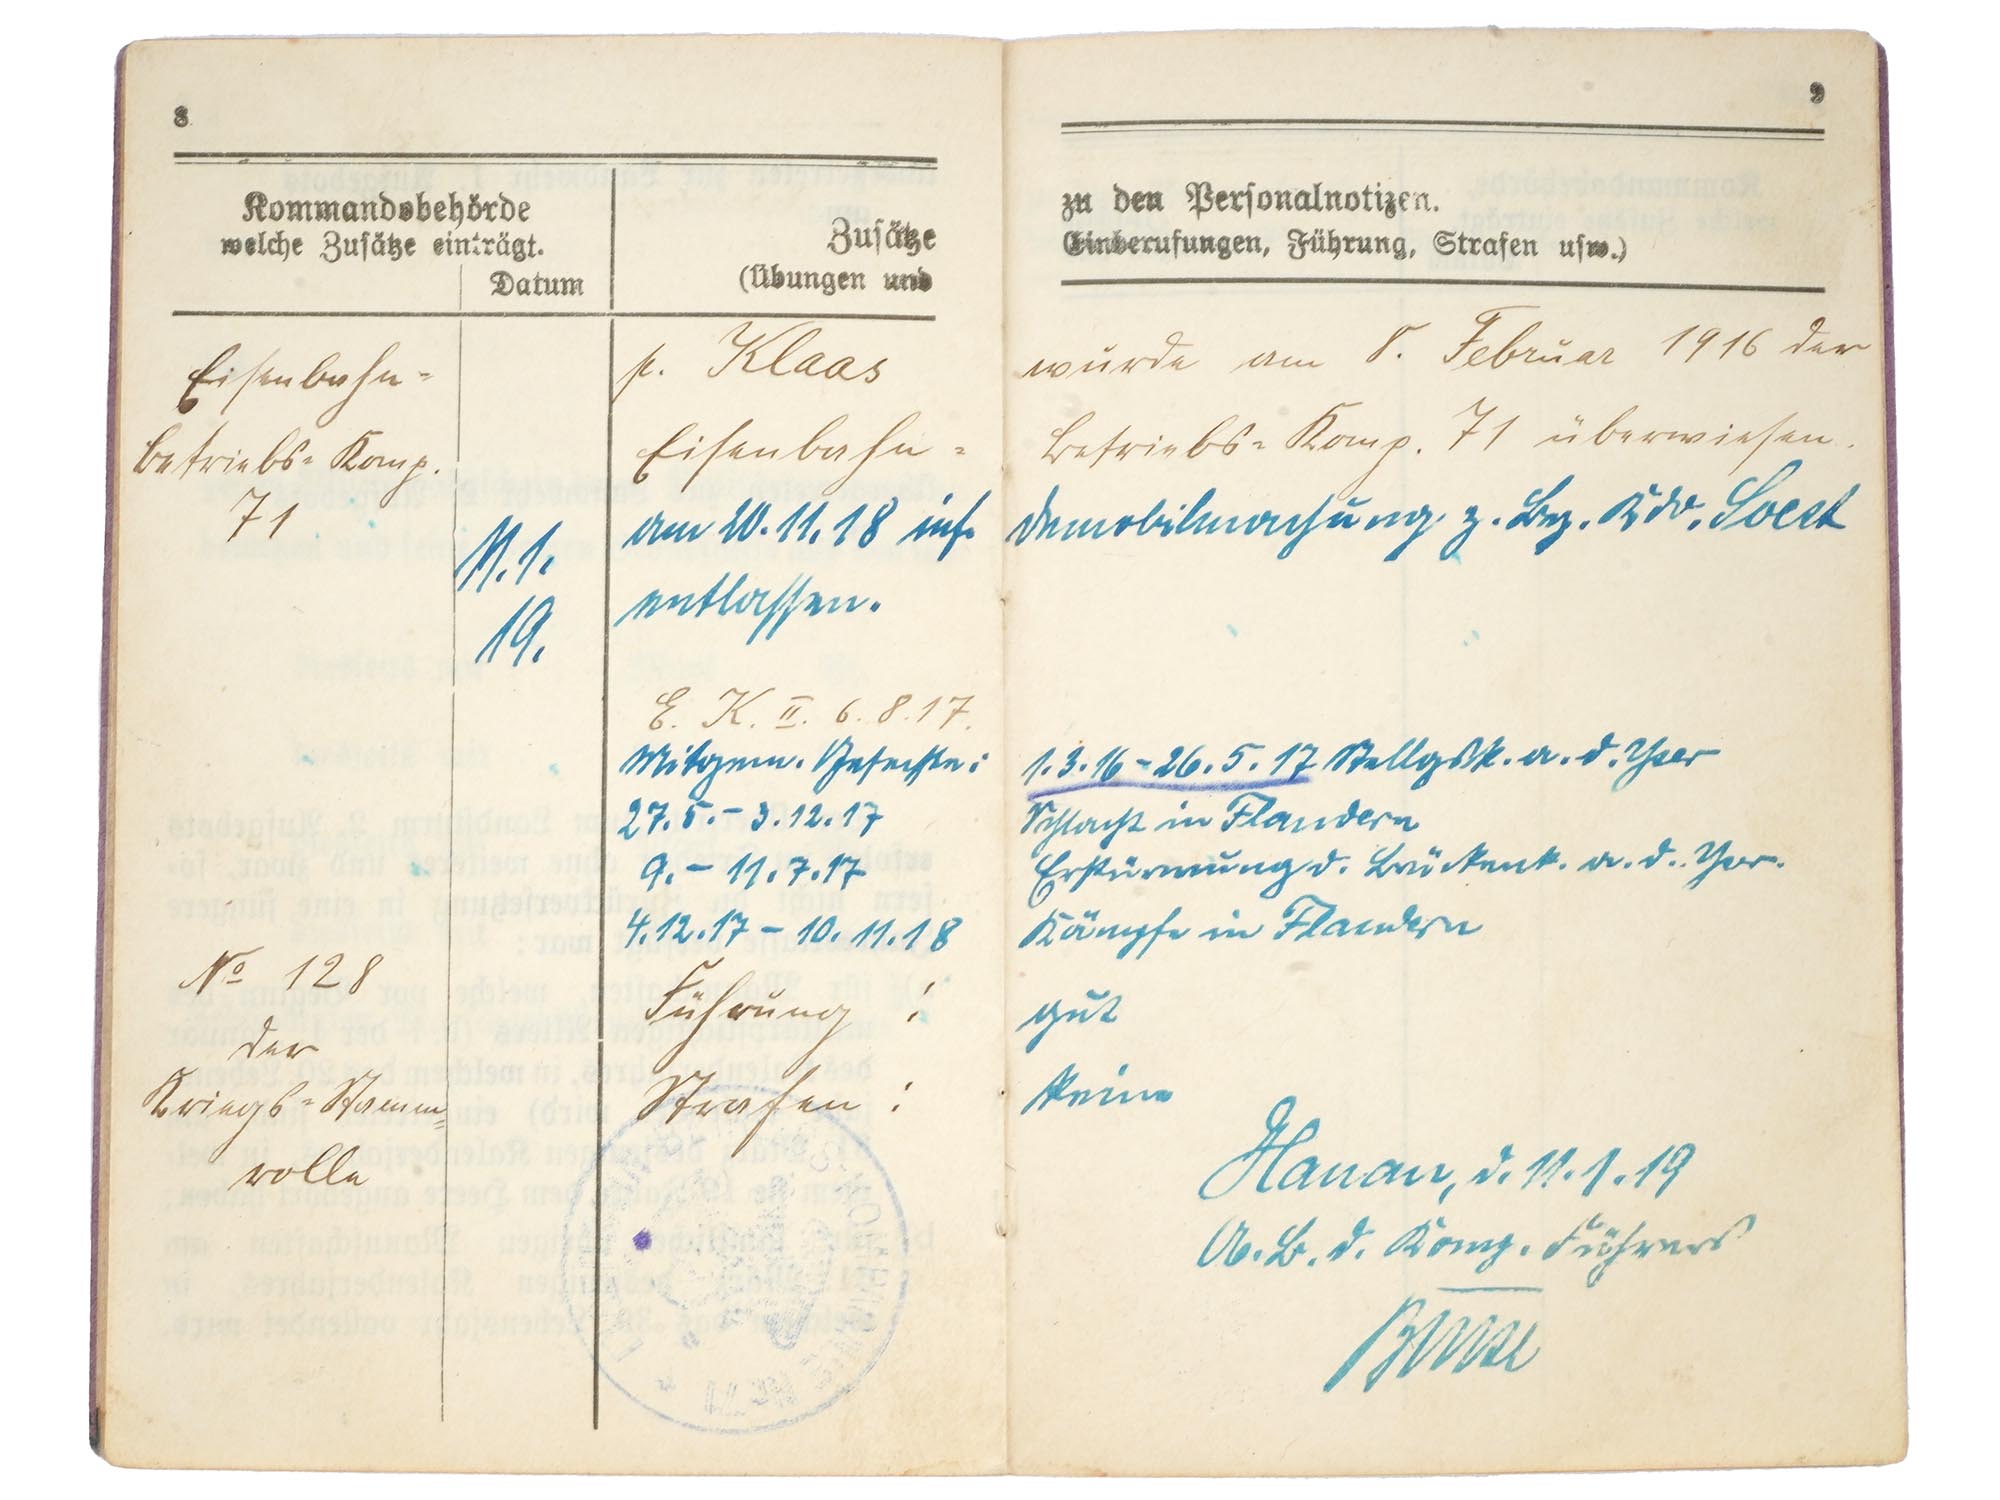 8
Kommandobehörde
welche Zusätze einträgt.
Datum
Zusätze
(Übungen und
Eisenbahn-
betriebs-Komp.
71
11.1.
19.
p. Klaas
Eisenbahn-
am 20.11.18 inf.
entlassen.
E. K. II. 6.8.17.
Mitgem. Gefechte:
27.5.-3.12.17
9.-11.7.17
4.12.17-10.11.18
No 128
der
Kriegs-Stamm-
rolle
Führung :
Strafen :
9
zu den Personalnotizen.
Einberufungen, Führung, Strafen usw.)
wurde am 8. Februar 1916 der
Betriebs-Komp. 71 überwiesen.
Demobilmachung z. Bez. Kdo. Soest
1.3.16-26.5.17 Stellgsk. a. d. Yser
Schlacht in Flandern
Erstürmung d. Brückenk. a. d. Yser.
Kämpfe in Flandern
gut
keine
Hanau, d. 11.1.19
A. B. d. Komp. Führers